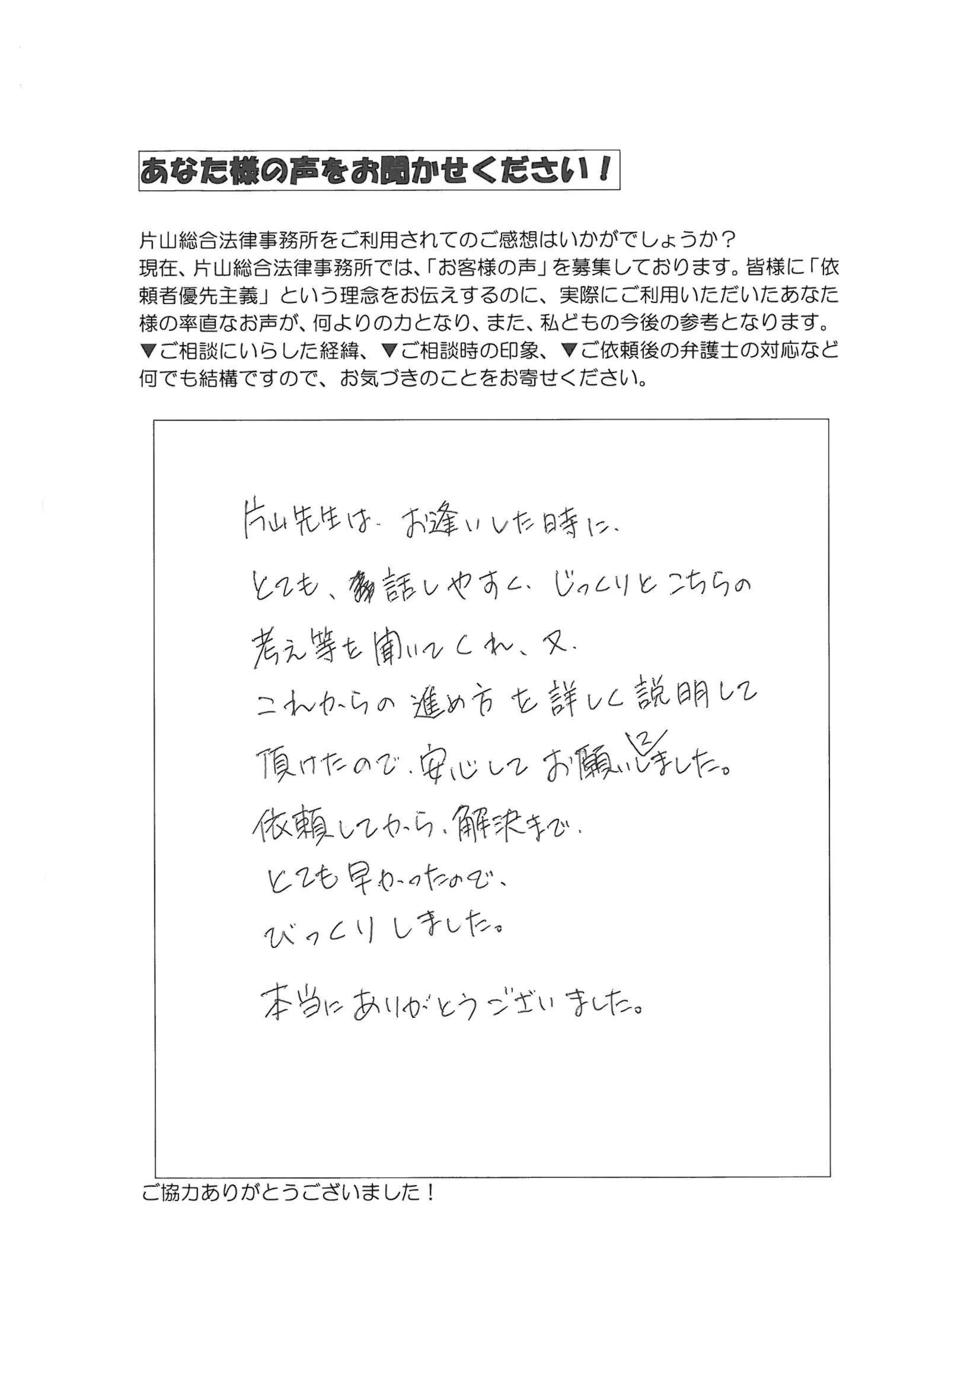 あなた様の声をお聞かせください！
片山総合法律事務所をご利用されてのご感想はいかがでしょうか？
現在、片山総合法律事務所では、「お客様の声」を募集しております。皆様に「依
頼者優先主義」という理念をお伝えするのに、実際にご利用いただいたあなた
様の率直なお声が、何よりの力となり、また、私どもの今後の参考となります。
▼ご相談にいらした経緯、▼ご相談時の印象、▼ご依頼後の弁護士の対応など
何でも結構ですので、お気づきのことをお寄せください。
片山先生は、お逢いした時に、
とても、話しやすく、じっくりとこちらの
考え等を聞いてくれ、又、
これからの進め方を詳しく説明して
頂けたので、安心してお願いしました。
依頼してから、解決まで、
とても早かったので、
びっくりしました。
本当にありがとうございました。
ご協力ありがとうございました！